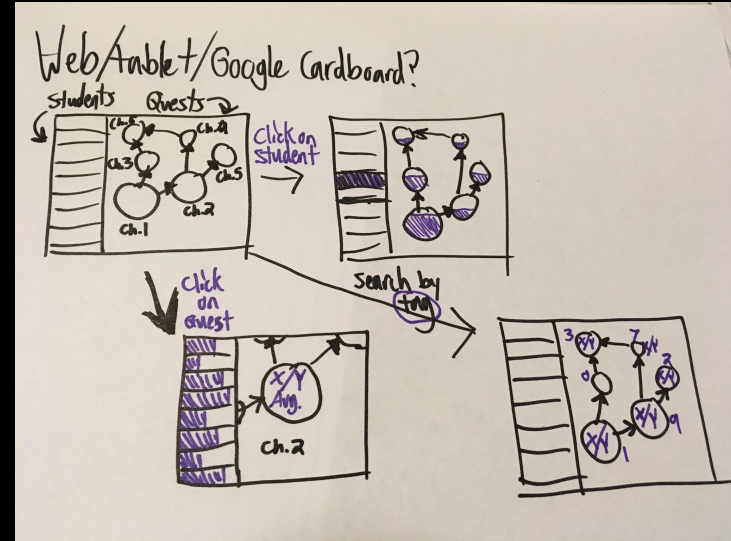 Web/tablet/Google Cardboard?
Students Quests
Ch.6 Ch.4
Ch.3 Ch.5
Ch.1 Ch.2
Click on
student
Click
on
Quest
Search by
tag
X/Y
Avg.
Ch.2
3 X/Y 7 X/Y
0 2 X/Y
X/Y 1 X/Y 9